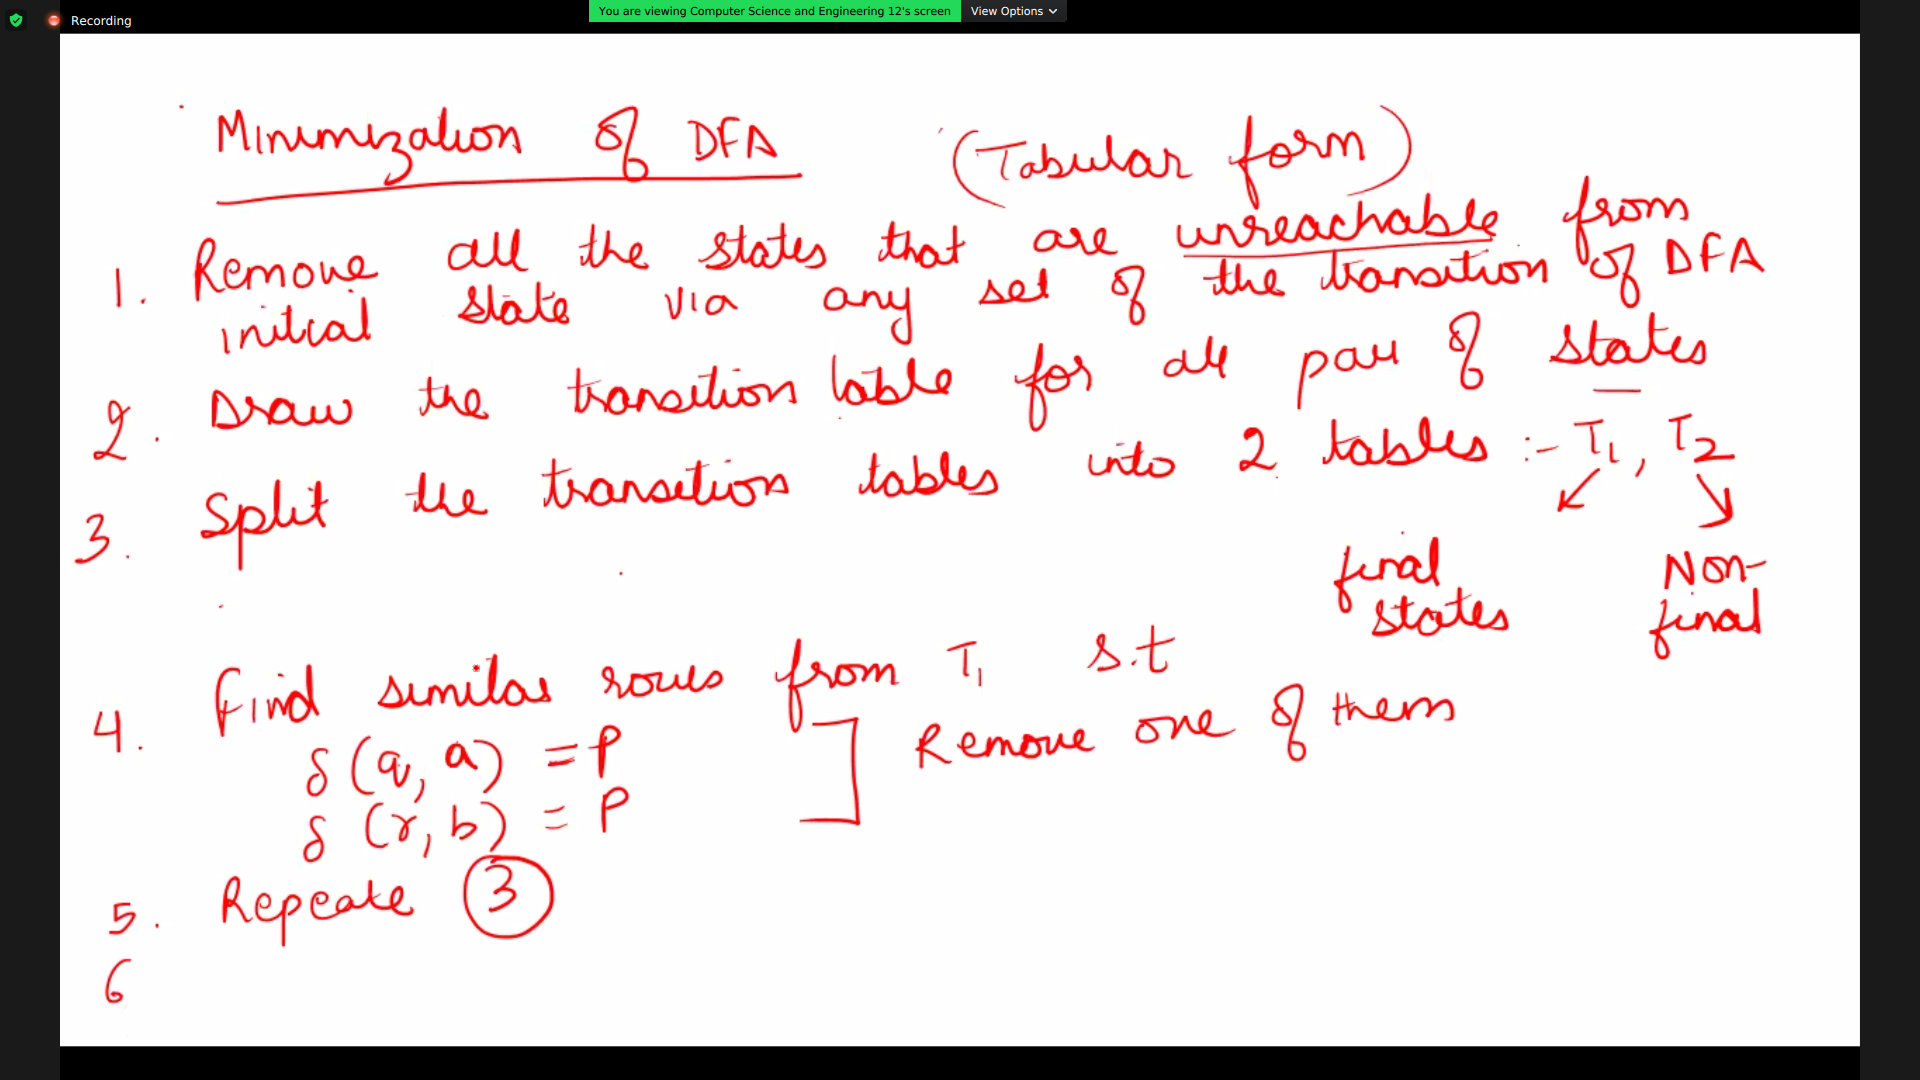 Recording
You are viewing Computer Science and Engineering 12's screen View Options
Minimization of DFA (Tabular form)
1. Remove all the states that are unreachable from
initial state via any set of the transition of DFA
2. Draw the transition table for all pair of states
3. Split the transition tables into 2 tables :- T1, T2
final states
Non-final
4. Find similar rows from T1 s.t
δ (q, a) = P
δ (r, b) = P
Remove one of them
5. Repeate 3
6